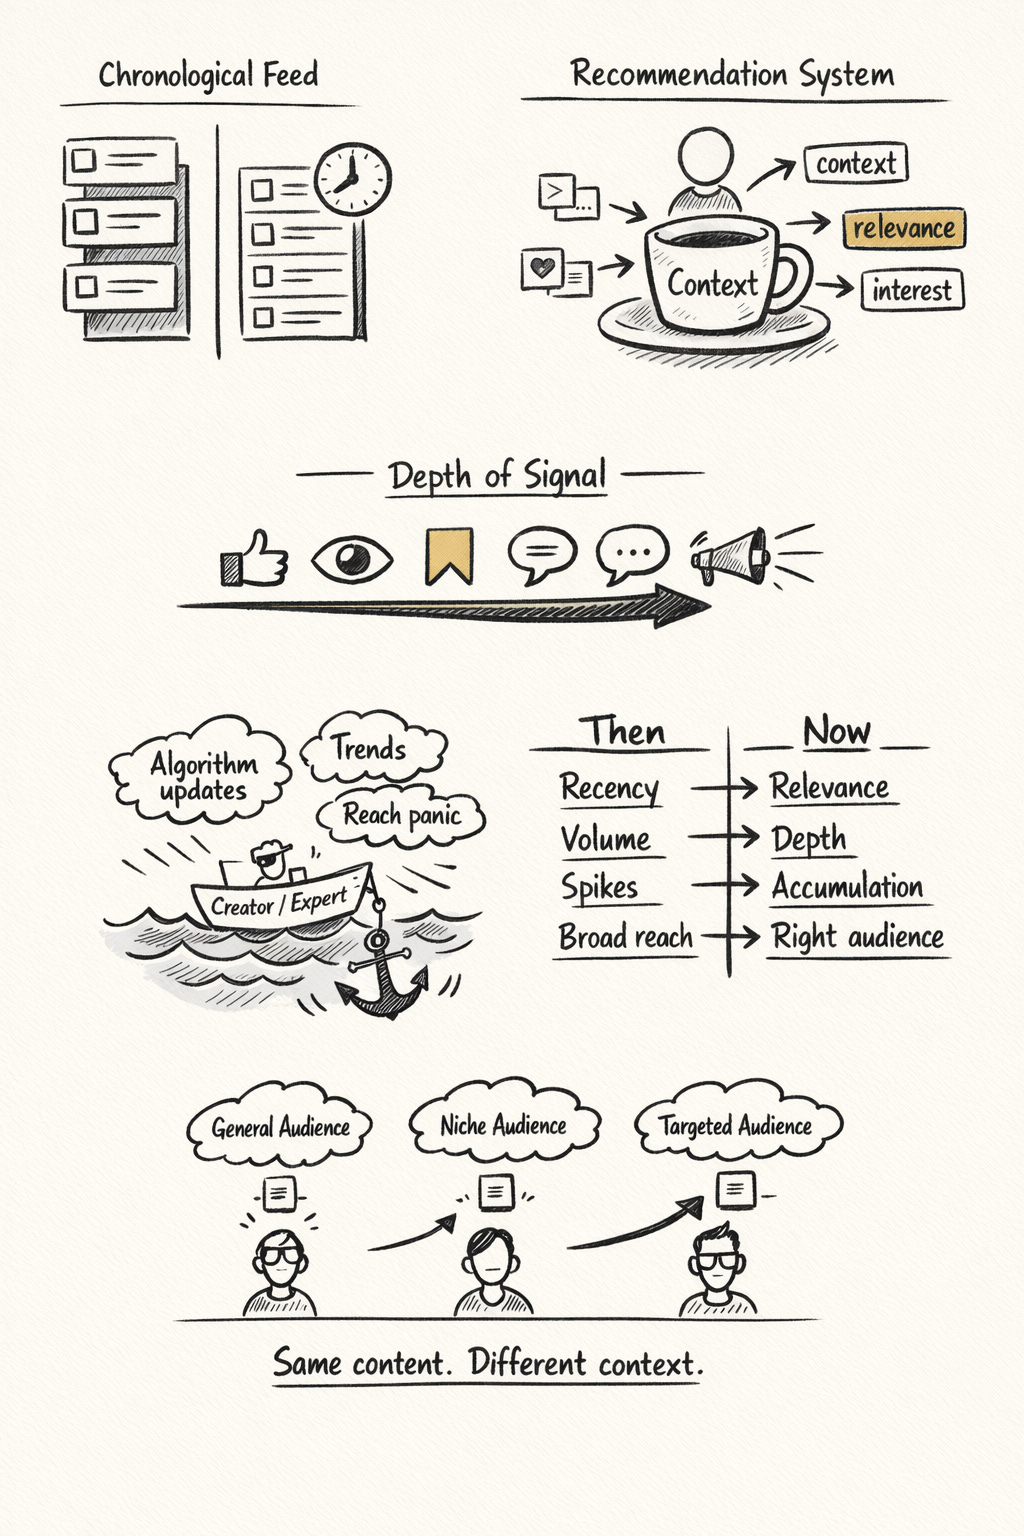 Chronological Feed
Recommendation System
context
relevance
interest
Context
Depth of Signal
Algorithm
updates
Trends
Reach panic
Creator / Expert
Then
Now
Recency
Relevance
Volume
Depth
Spikes
Accumulation
Broad reach
Right audience
General Audience
Niche Audience
Targeted Audience
Same content. Different context.